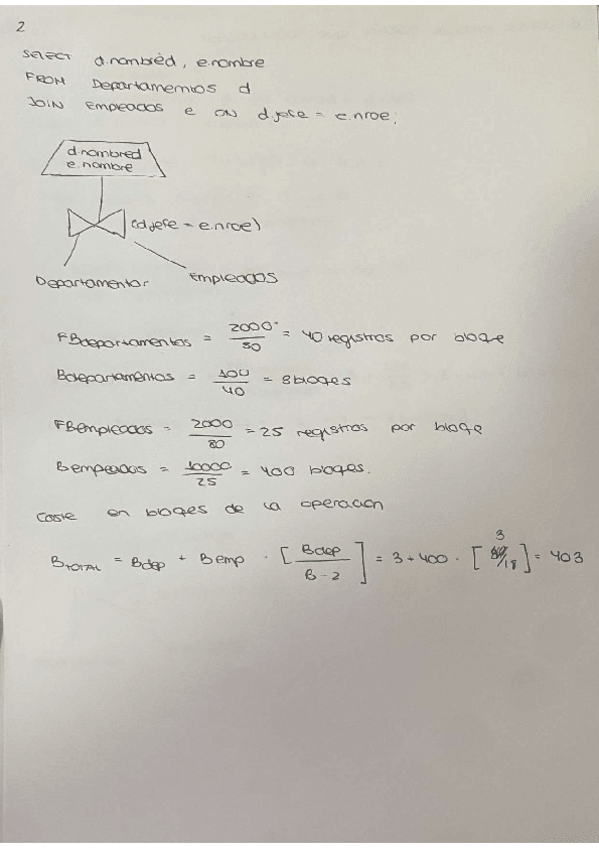 2
SELECT d.nombred, e.nombre
FROM Departamentos d
JOIN Empleados e ON d.jefe = e.nroe;
d.nombred
e.nombre
(d.jefe = e.nroe)
Departamentos
Empleados
FBdepartamentos = 2000/50 = 40 registros por bloqe
Bdepartamentos = 100/40 = 3 bloqes
FBempleados = 2000/80 = 25 registros por bloqe
Bempleados = 10000/25 = 400 bloqes.
Coste en bloqes de la operacion
B TOTAL = Bdep + Bemp · [Bdep / B-2] = 3 + 400 · [3/18] = 403